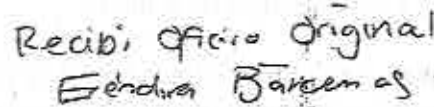 Recibi oficio original
Eéndira Bárcenas